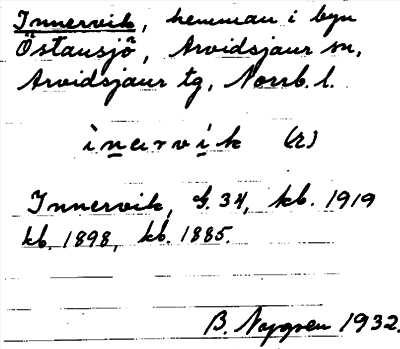 Innervik, hemman i byn
Östansjö, Arvidsjaur sn,
Arvidsjaur tg, Norrb. l.
ìnarvík (r)
Innervik, G. 34, kb. 1919
kb. 1898, kb. 1885.
B. Nygren 1932.